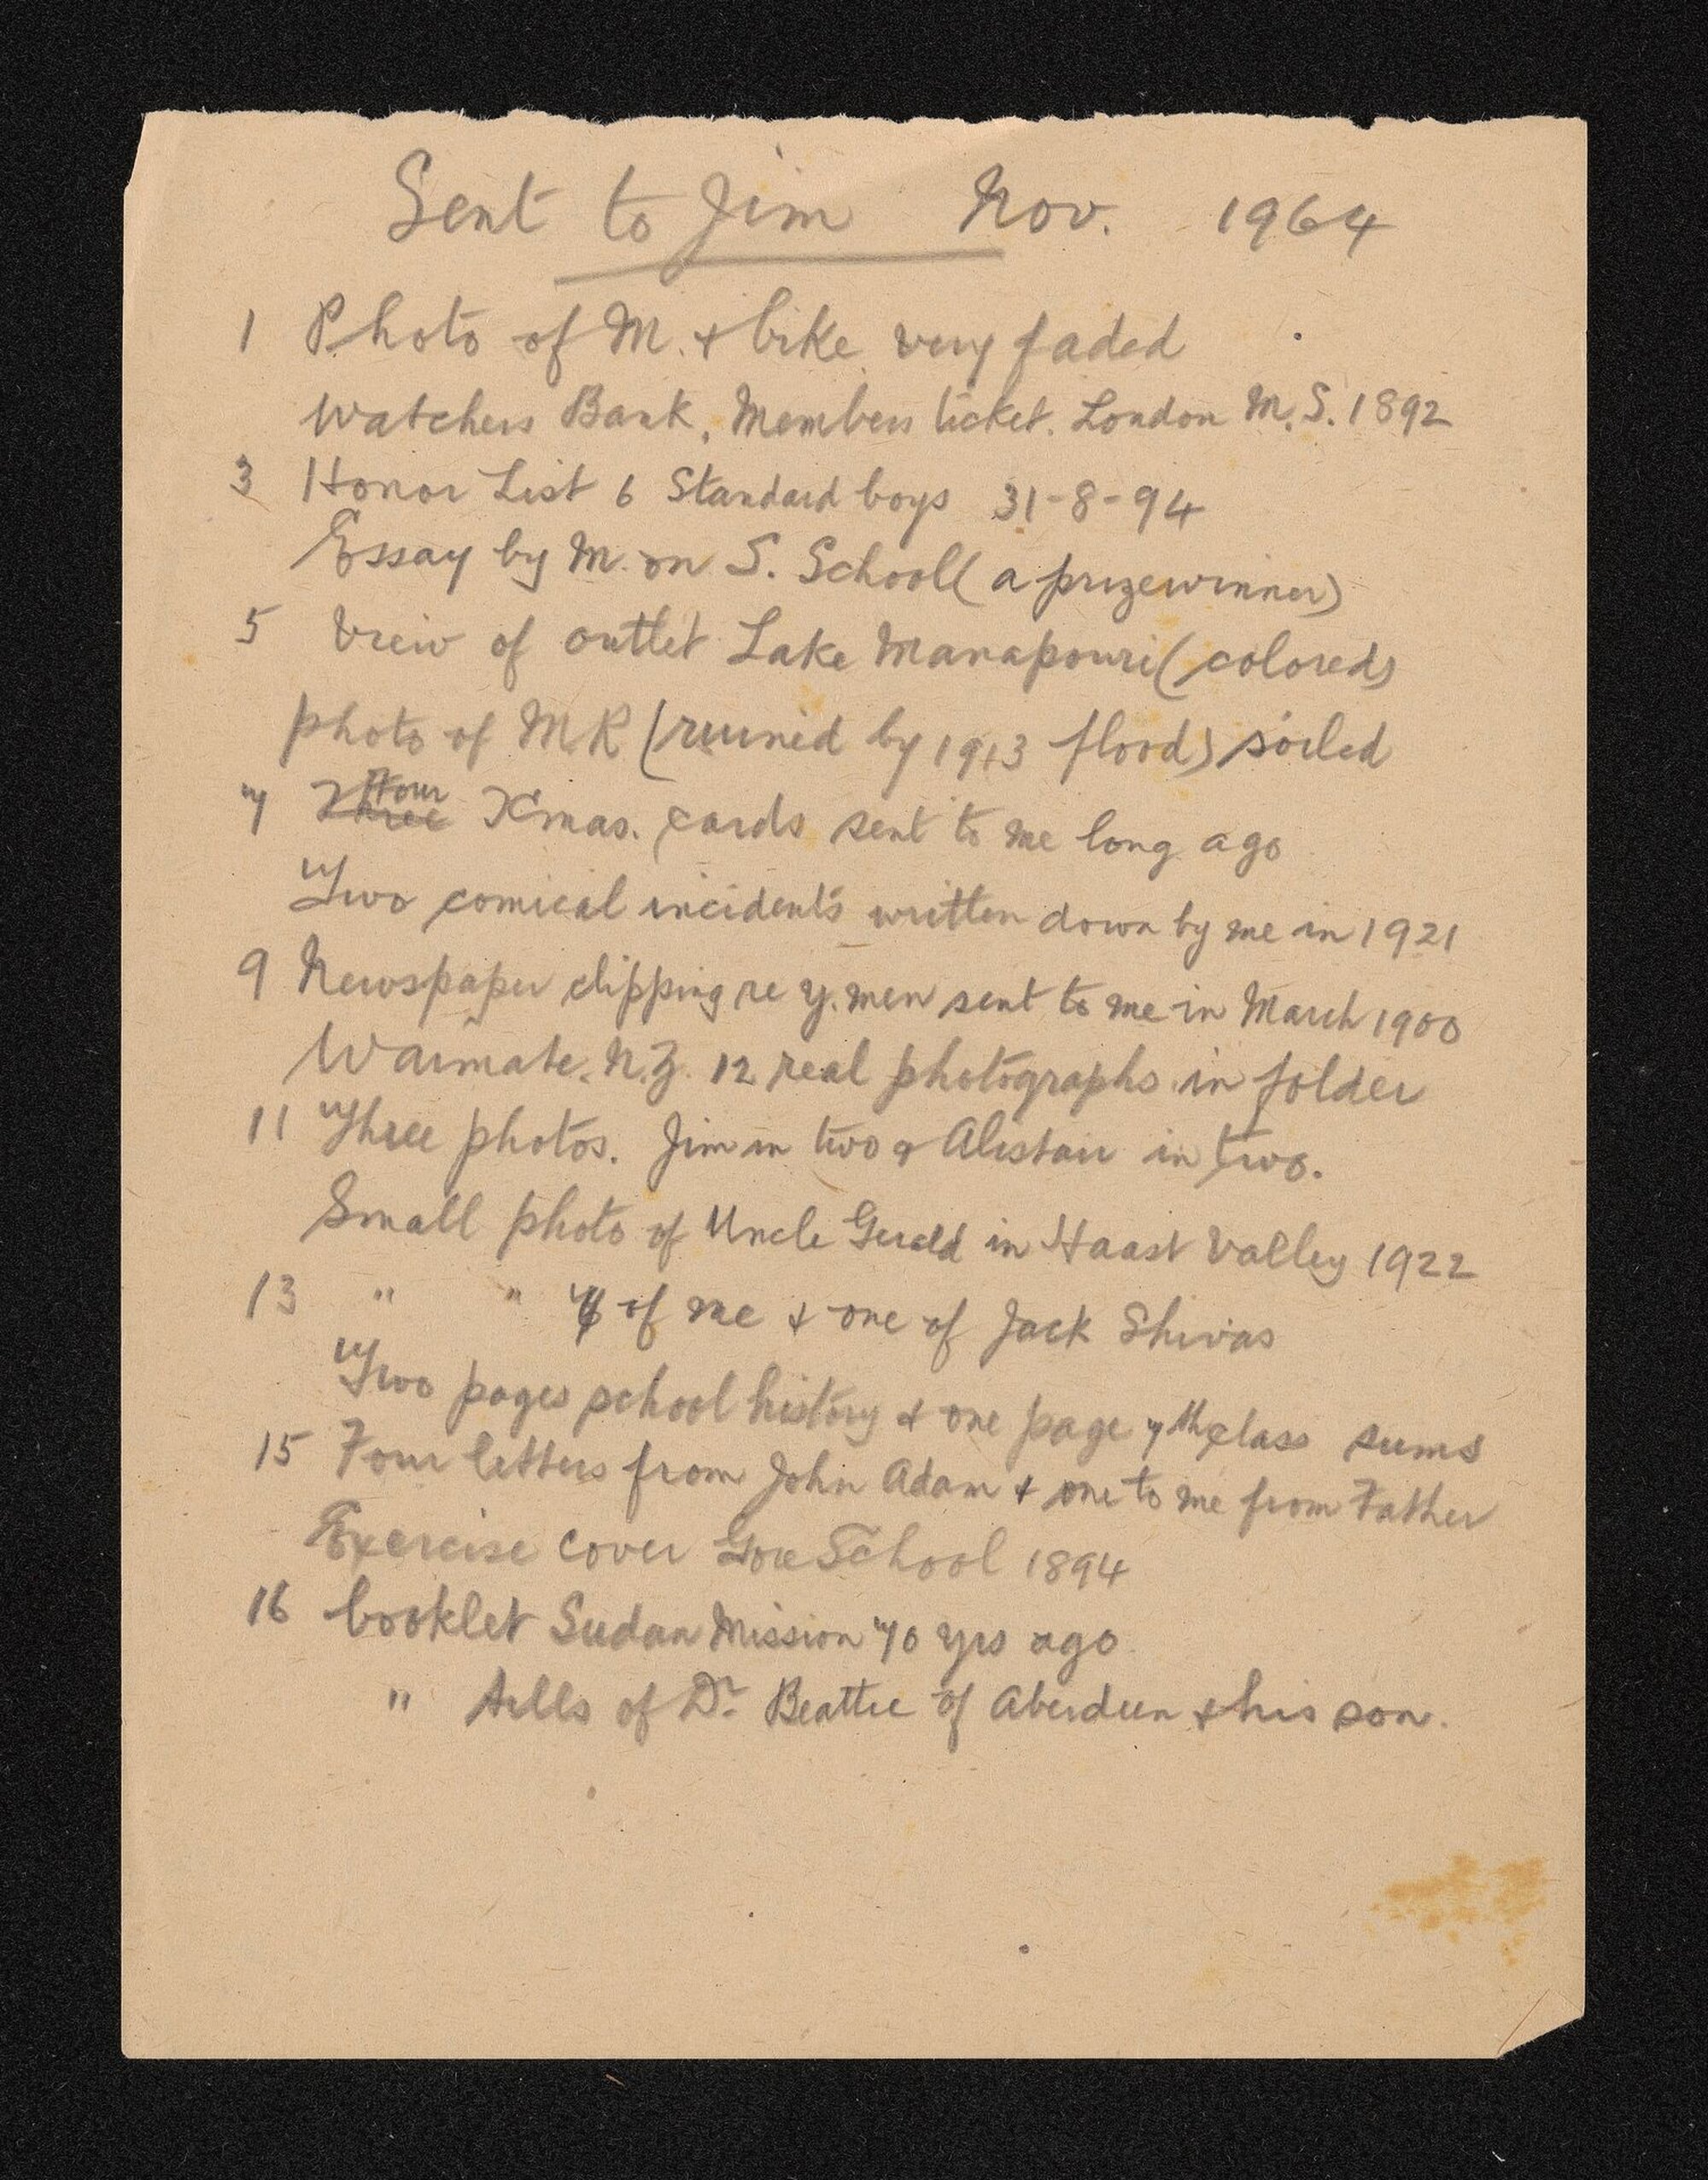 Sent to Jim Nov. 1964
1 Photo of M. & bike very faded
Watchers Bank, Members ticket. London M.S. 1892
3 Honor List 6 Standard boys 31-8-94
Essay by M. on S. School (a prizewinner)
5 View of outlet Lake Manapouri (colored)
photo of MR (ruined by 1913 flood) soiled
7 Three Four Xmas. cards sent to me long ago
Two comical incidents written down by me in 1921
9 Newspaper clipping re y. men sent to me in March 1900
Waimate. N.Z. 12 real photographs in folder
11 Three photos. Jim in two & Alistair in two.
Small photo of Uncle Gerald in Haast Valley 1922
13 " " of me & one of Jack Shivas
Two pages school history & one page 7th class sums
15 Four letters from John Adam & one to me from Father
Exercise cover Gore School 1894
16 booklet Sudan Mission 70 yrs ago
" tells of Dr. Beattie of Aberdeen & his son.